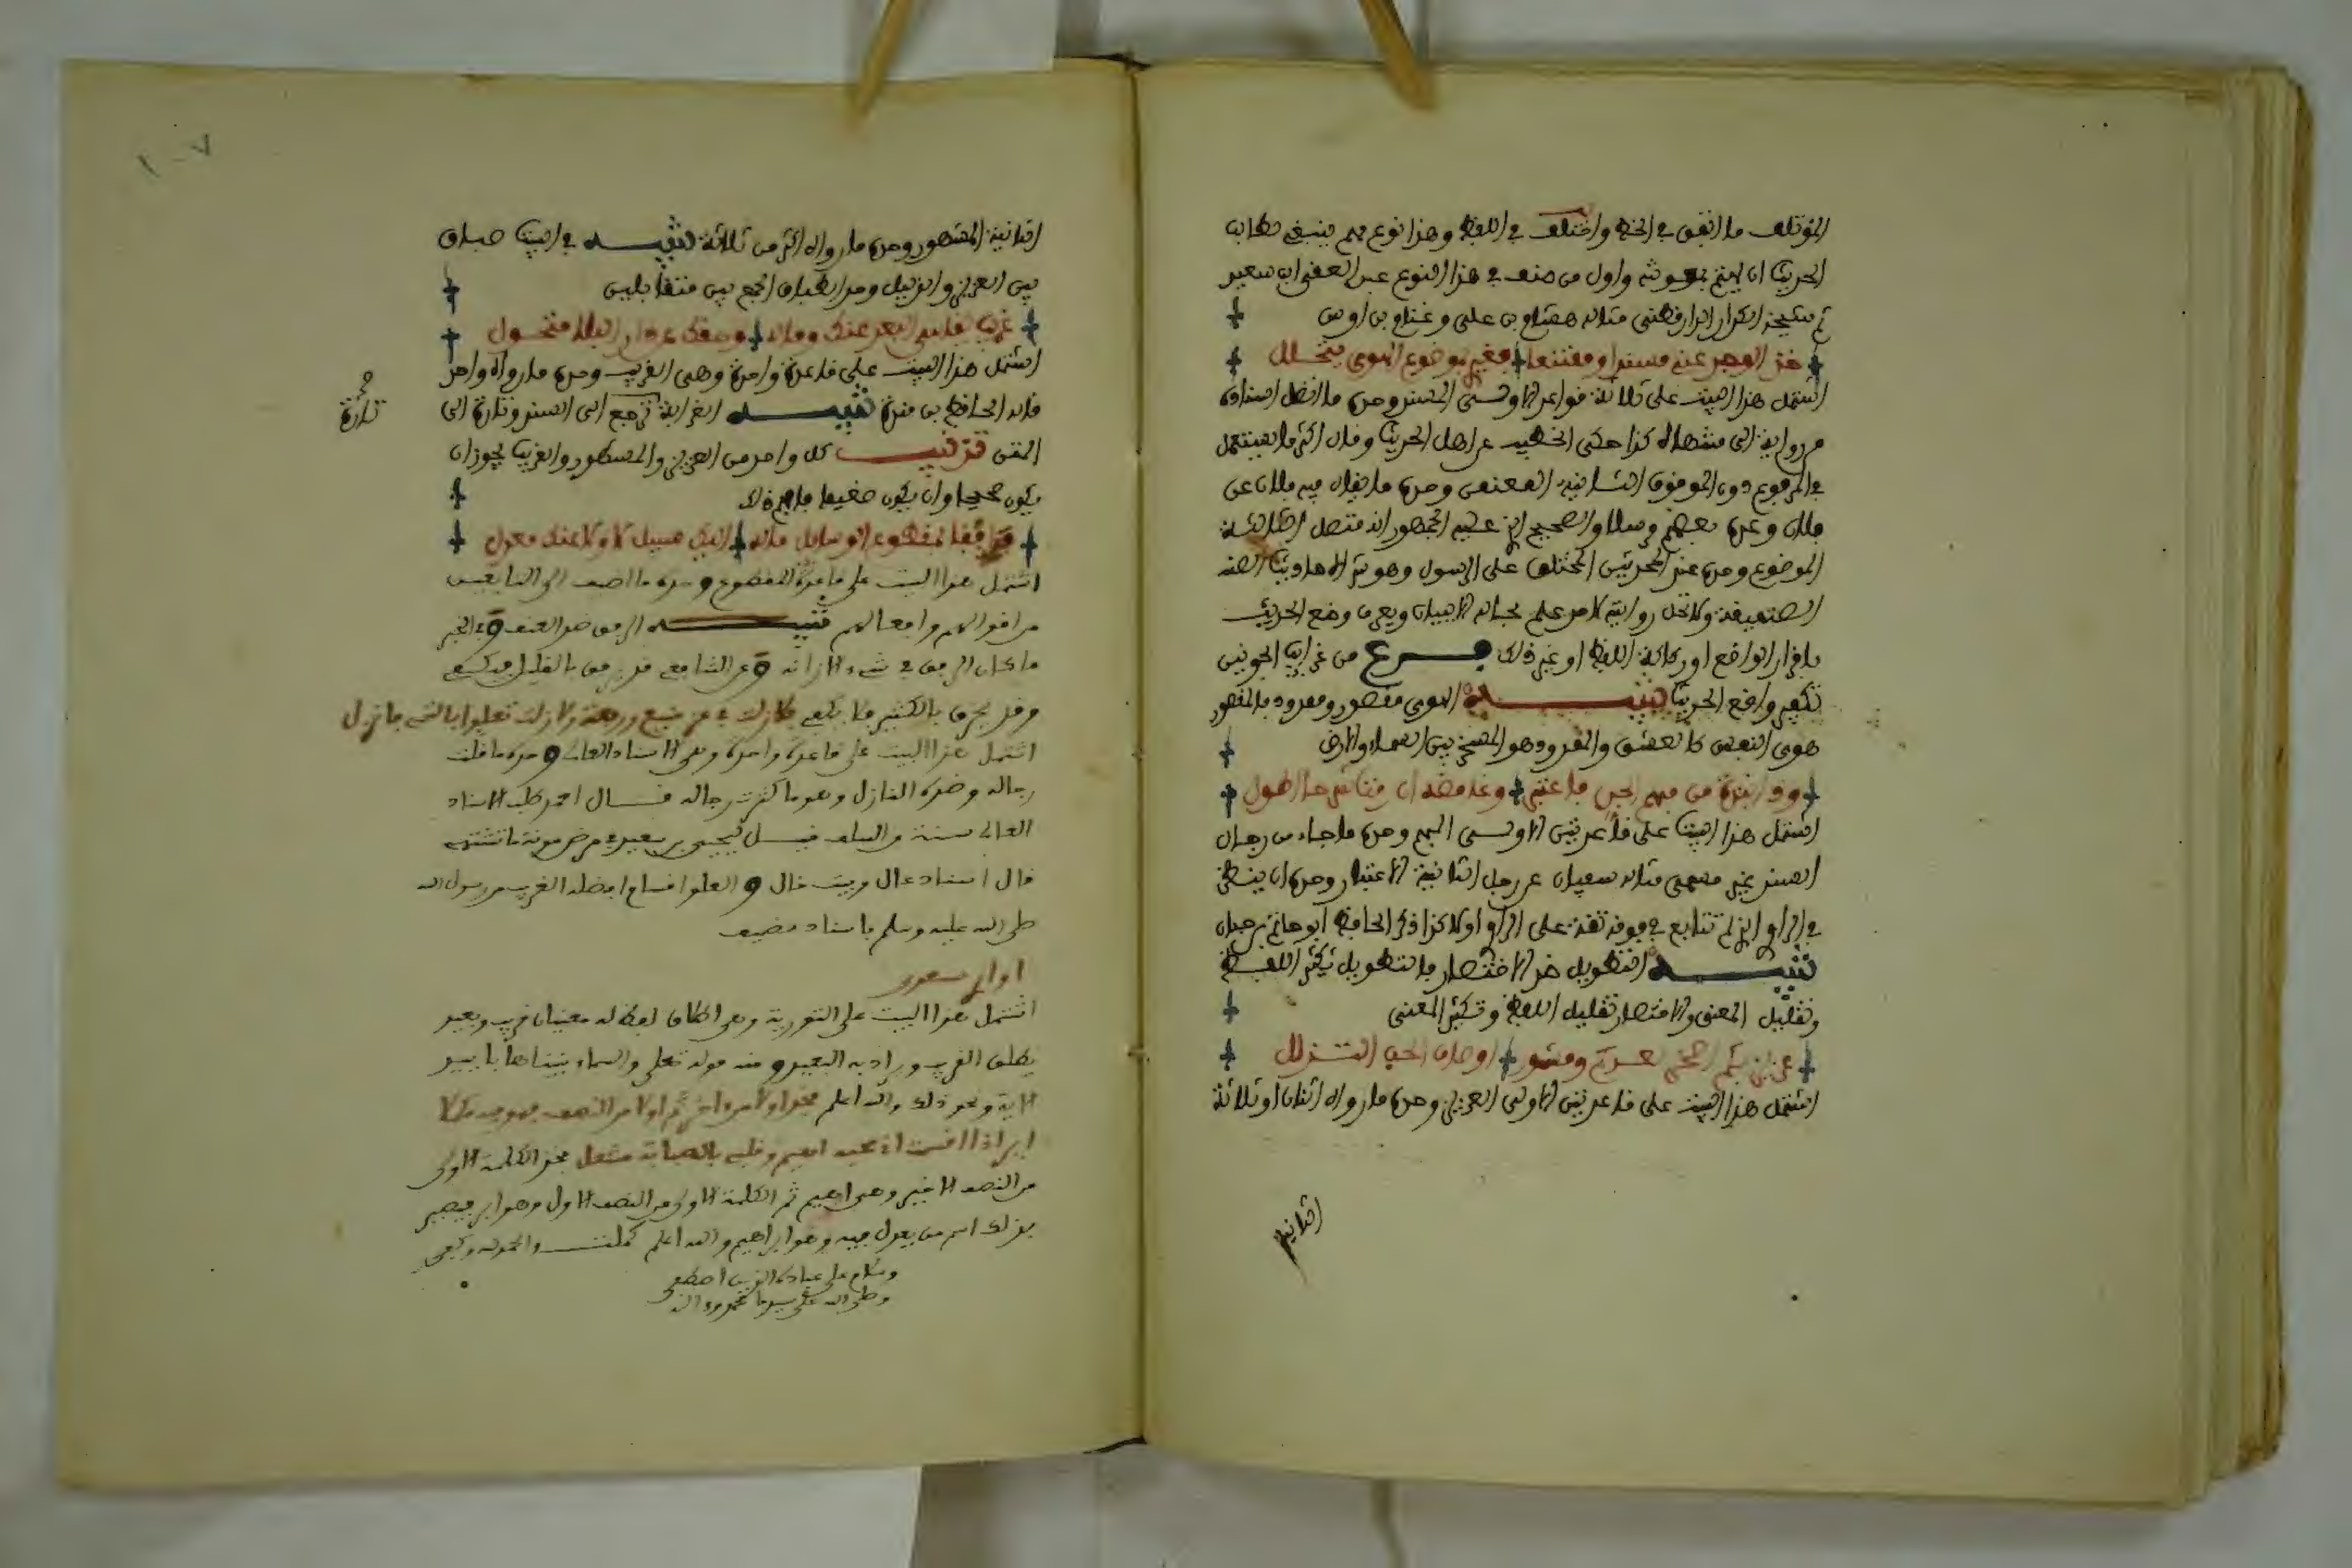 المؤتلف ما اتفق في الخط واختلف في اللفظ وهذا نوع مهم ينبغي لطالب
الحديث ان يهتم بمعرفته واول من صنف في هذا النوع عبد الغني ابن سعيد
ثم شيخه الدارقطني مثاله هشام بن علي وغنام بن اوس
خذ الوجد عني مسندا ومعنعنا فغيري بموضوع الهوى يتحلل
اشتمل هذا البيت على ثلاثة قواعد الاولى المسند وحده ما اتصل اسناده
من روايه الى منتهاه كذا حكى الخطيب عن اهل الحديث وقال اكثر ما يستعمل
في المرفوع دون الموقوف الثانية المعنعن وحده ما يقال فيه فلان عن
فلان وعده بعضهم مرسلا والصحيح الذي عليه الجمهور انه متصل الثالثة
الموضوع وحده عند المحدثين المختلق على الرسول وهو شر الاحاديث
الضعيفة ولا تحل روايته لاحد علم بحاله الا ببيان ويعرف وضع الحديث
باقرار الواضع او ركاكة اللفظ او غير ذلك فرع من غرايب الجويني
تكفير واضع الحديث تنبيه الهوى مقصور وممدود فالمقصور
هوى النفس كالعشق والممدود هو المسخر بين السماء والارض
وذي نبذة من مبهم الحب فاعتبر وغامضه ان رمت شرحا اطول
اشتمل هذا البيت على قاعدتين الاولى المبهم وحده ما جاء من رجال
السند غير مسمى مثاله سفيان عن رجل الثانية الاعتبار وحده ان ينظر
في الراوي الذي لم تتابع في فوقه ثقة على الراوي اولا كذا ذكر الحافظ ابو حاتم بن حبان
تنبيه التطويل ضد الاختصار فالتطويل تكثير اللفظ
وتقليل المعنى والاختصار تقليل اللفظ وتكثير المعنى
عزيز بكم صب ومشهور اوصاف المحب التذلل
اشتمل هذا البيت على قاعدتين الاولى العزيز وحده ما رواه اثنان او ثلاثة
الثانية
١٠٧
الثانية المشهور وحده ما رواه اكثر من ثلاثة تنبيه في البيت طباق
بين العزيز والذليل وحد الطباق الجمع بين متقابلين
غريب يقاسي البعد عنك وماله وحقك عن دار البلا متحول
اشتمل هذا البيت على قاعدة واحدة وهي الغريب وحده ما رواه واحد
قاله الحافظ بن مندة تنبيه الغرابة ترجع الى السند وتارة الى
تارة
صح
المتن تذنيب كل واحد من العزيز والمشهور والغريب يجوز ان
يكون صحيحا وان يكون ضعيفا فافهم ذلك
فرفقا لمقطوع الوسايل ماله اليك سبيل لا ولا عنك معدل
اشتمل هذا البيت على قاعدة المقطوع وحده ما اضيف الى التابعين
من اقوالهم وافعالهم تنبيه الرفق ضد العنف وفي الخبر
ما كان الرفق في شيء الا زانه وعن الشافعي قد يرفق بالقليل فيكفي
وقد يخرق بالكثير فلا يكفي فلا زلت في عز منيع ورفعة ولا زلت تعلوا بالتجني فانزل
اشتمل هذا البيت على قاعدة واحدة وهي الاسناد العالي وحده ما قلت
رجاله وضده النازل وهو ما كثرت رجاله قال احمد طلب الاسناد
العالي سنة من السلف قيل ليحيى بن معين في مرض موته ما تشتهي
قال اسناد عال وبيت خال والعلو اقسام افضله القرب من رسول الله
صلى الله عليه وسلم باسناد نضيف
اوري بسعدى
اشتمل هذا البيت على التورية وهي اطلاق لفظ له معنيان قريب وبعيد
يطلق القريب ويراد به البعيد ومنه قوله تعلى والسماء بنيناها باييد
الاية ونحو ذلك والله اعلم فخذ اولا من اخر ثم اولا من النصف فهو فيه مكملا
ابر اذا اقسمت اني بحبه اهيم وقلبي بالصبابة مشعل فخذ الكلمة الاولى
من النصف الاخير وهي اهيم ثم الكلمة الاولى من النصف الاول وهو ابر فيصير
بذلك اسم من يعول فيه وهو ابراهيم والله اعلم كملت والحمد لله وكفى
وسلام على عباده الذين اصطفى
وصلى الله على سيدنا محمد واله